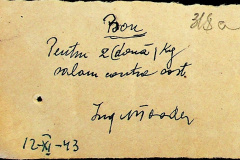 Bon
Pentru 2 (două) kg
salam contra cost.
Ing
12-XI-43